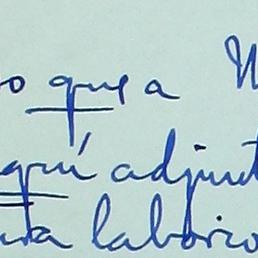 o que a
aquí adjunt
una laborio